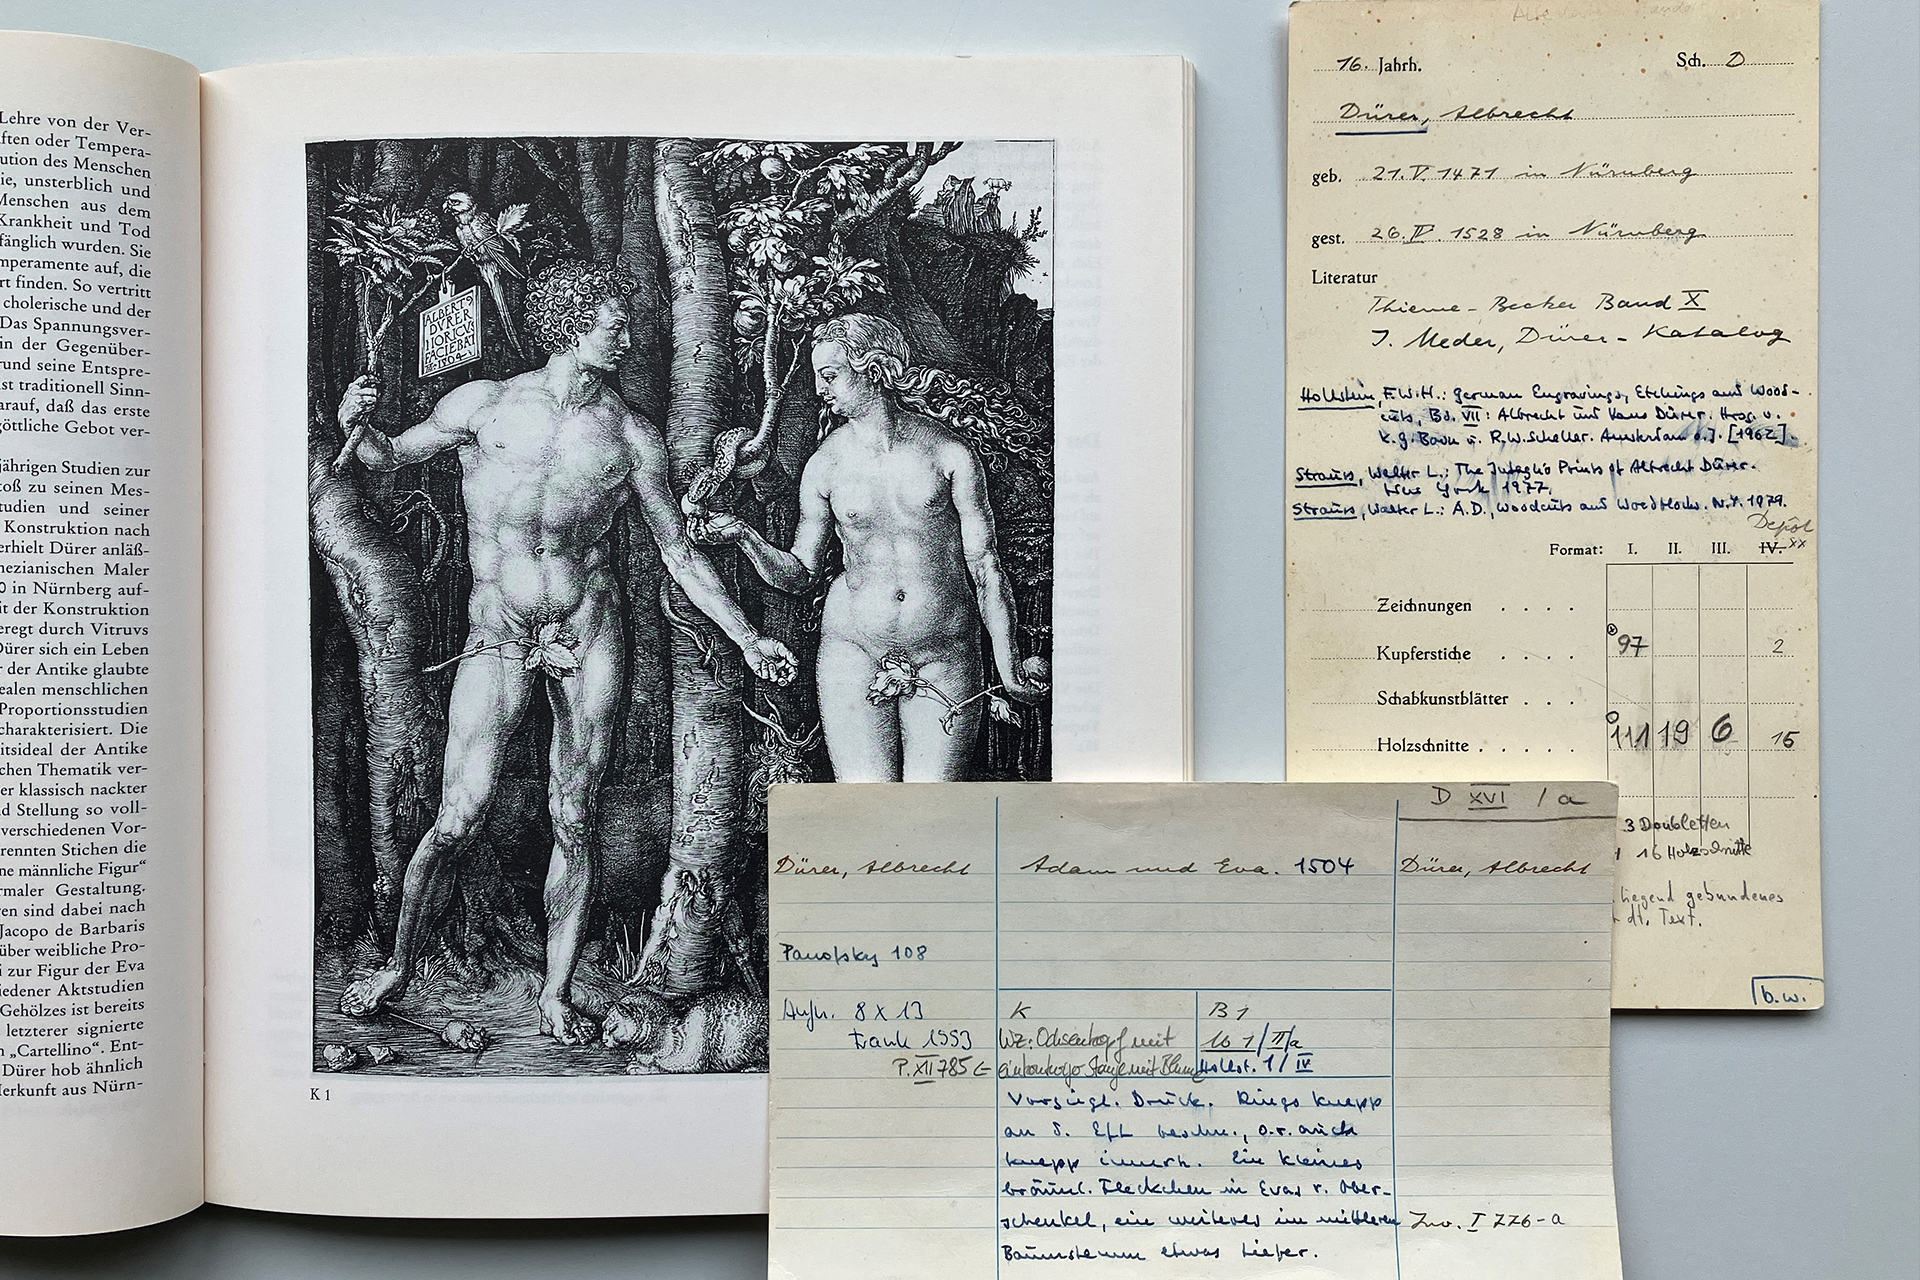 Lehre von der Ver-
ften oder Tempera-
ution des Menschen
ie, unsterblich und
Menschen aus dem
Krankheit und Tod
fänglich wurden. Sie
mperamente auf, die
rt finden. So vertritt
cholerische und der
Das Spannungsver-
in der Gegenüber-
rund seine Entspre-
st traditionell Sinn-
arauf, daß das erste
göttliche Gebot ver-
jährigen Studien zur
toß zu seinen Mes-
tudien und seiner
Konstruktion nach
erhielt Dürer anläß-
nezianischen Maler
0 in Nürnberg auf-
it der Konstruktion
eregt durch Vitruvs
Dürer sich ein Leben
r der Antike glaubte
ealen menschlichen
Proportionsstudien
charakterisiert. Die
itsideal der Antike
chen Thematik ver-
er klassisch nackter
d Stellung so voll-
verschiedenen Vor-
rennten Stichen die
ne männliche Figur“
rmaler Gestaltung.
en sind dabei nach
Jacopo de Barbaris
über weibliche Pro-
i zur Figur der Eva
iedener Aktstudien
Gehölzes ist bereits
letzterer signierte
n „Cartellino“. Ent-
Dürer hob ähnlich
Herkunft aus Nürn-
ALBERT
DVRER
NORICVS
FACIEBAT
1504
K 1
16. Jahrh. Sch. D
Dürer, Albrecht
geb. 21. V. 1471 in Nürnberg
gest. 26. IV. 1528 in Nürnberg
Literatur
Thieme-Becker Band X
J. Meder, Dürer-Katalog
Hollstein, F.W.H.: German Engravings, Etchings and Wood-
cuts, Bd. VII: Albrecht und Hans Dürer. Hrsg. v.
K.G. Boon u. R.W. Scheller. Amsterdam o.J. [1962].
Strauss, Walter L.: The Intaglio Prints of Albrecht Dürer.
New York 1977.
Strauss, Walter L.: A.D., Woodcuts and Woodblocks. N.Y. 1979.
Depot
Format: I. II. III. IV. xx
Zeichnungen . . . .
Kupferstiche . . . . 97 2
Schabkunstblätter . . .
Holzschnitte . . . . . 111 19 6 15
3 Doubletten
16 Holzschnitte
liegend gebundenes
dt. Text.
b.w.
D XVI / a
Dürer, Albrecht Adam und Eva. 1504 Dürer, Albrecht
Panofsky 108
Aufn. 8 x 13 K B 1
Frank 1993 Wz: Ochsenkopf mit M 1/II/a
P. XII 785 Stange mit Blume Hollst. 1/IV
Vorzügl. Druck. Rings knapp
an d. Efl beschn., o.r. auch
knapp innerh. Ein kleines
bräunl. Fleckchen in Evas r. Ober-
schenkel, ein weiteres im mittleren Inv. I 776-a
Baumstamm etwas tiefer.